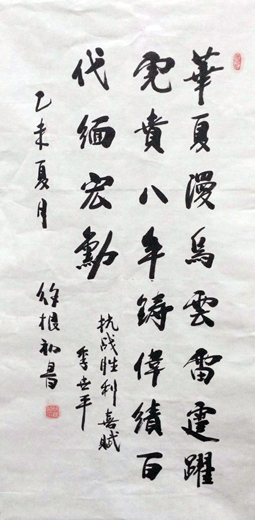 華夏漫烏雲雷霆躍
電貴八年鑄偉績百
代緬宏勳
抗战胜利喜赋
李世平
乙未夏月
徐根初書